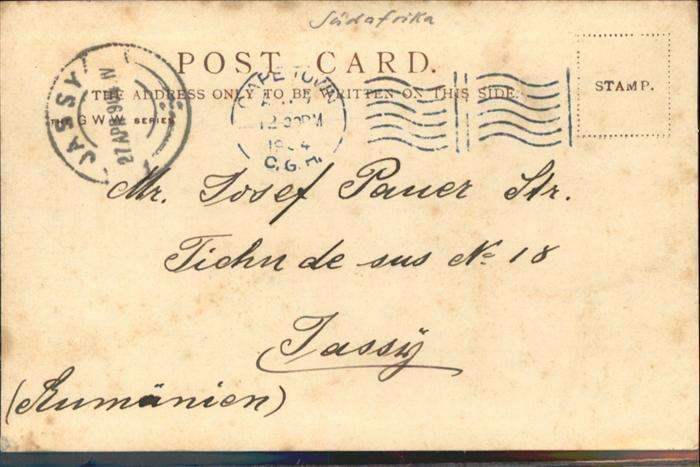 Südafrika
POST CARD.
THE ADDRESS ONLY TO BE WRITTEN ON THIS SIDE.
STAMP.
G.W.W. SERIES
JASSY
27 APR 9
CAPE TOWN
12 30PM
C.G.H.
Mr. Josef Pauer Str.
Tichn de sus No 18
Jassÿ
(Rumänien)